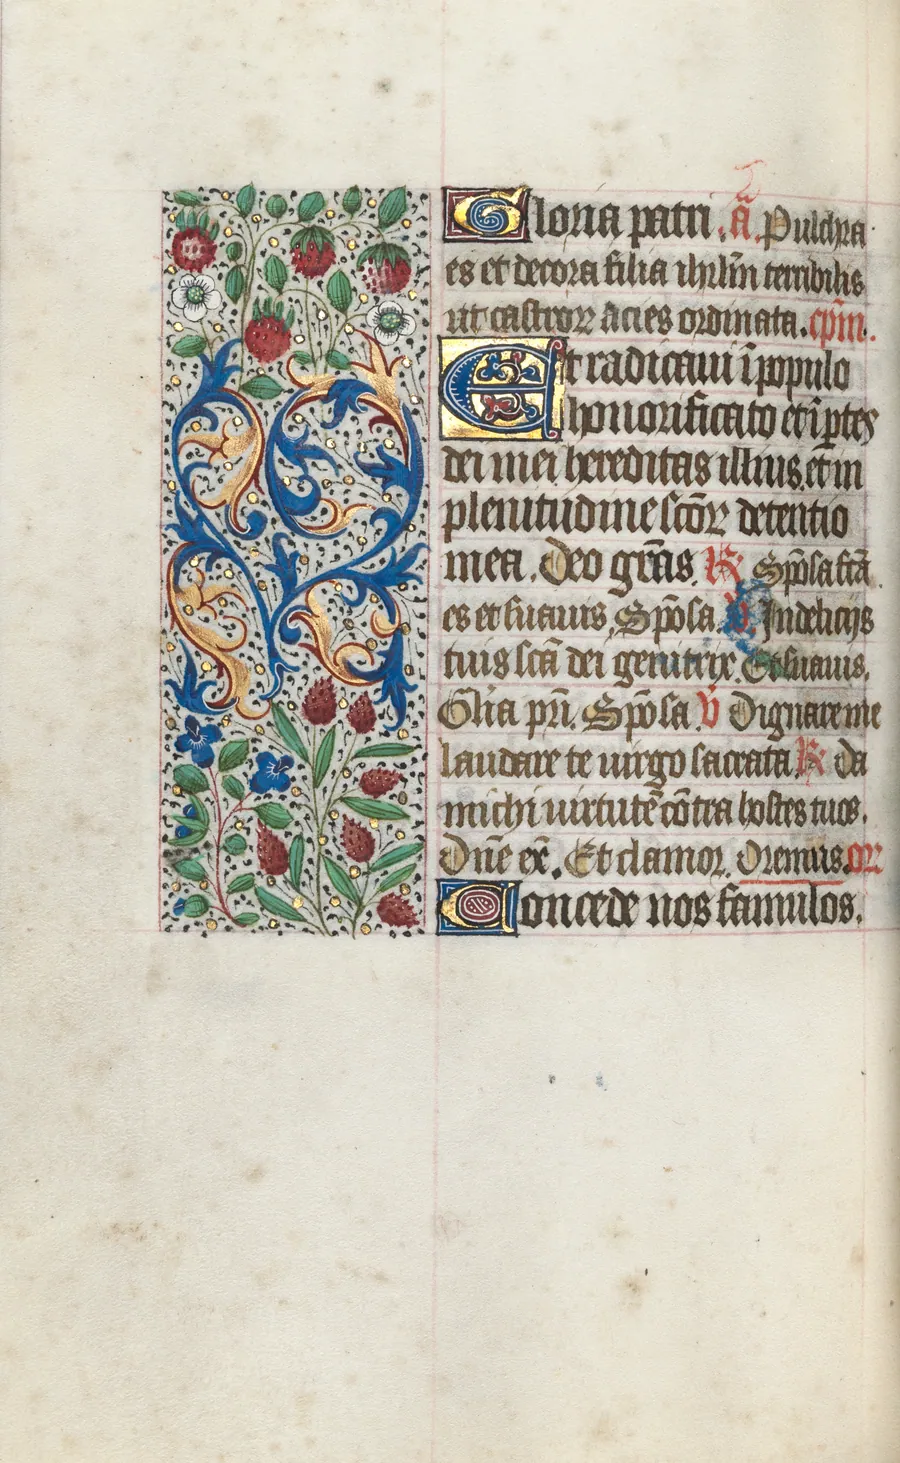 Gloria patri. ā. Pulchra
es et decora filia ihrlm̄ terribilis
ut castroꝝ acies ordinata. cpm̄.
Et radicaui ī populo
honorificato et ī ꝑtes
dei mei hereditas illius. et in
plenitudine sc̄oꝝ detentio
mea. Deo gr̄as. ℟ Spēosa fc̄a
es et suauis, Spēosa. ℣ In delicijs
tuis sc̄a dei genitrix. Et suauis.
Gl̄ia pr̄i. Spēosa. ℣ Dignare me
laudare te uirgo sacrata. ℟ da
michi uirtutē cōtra hostes tuos.
Dn̄e ex̄. Et clamor. Oremus. or̄
Concede nos famulos.